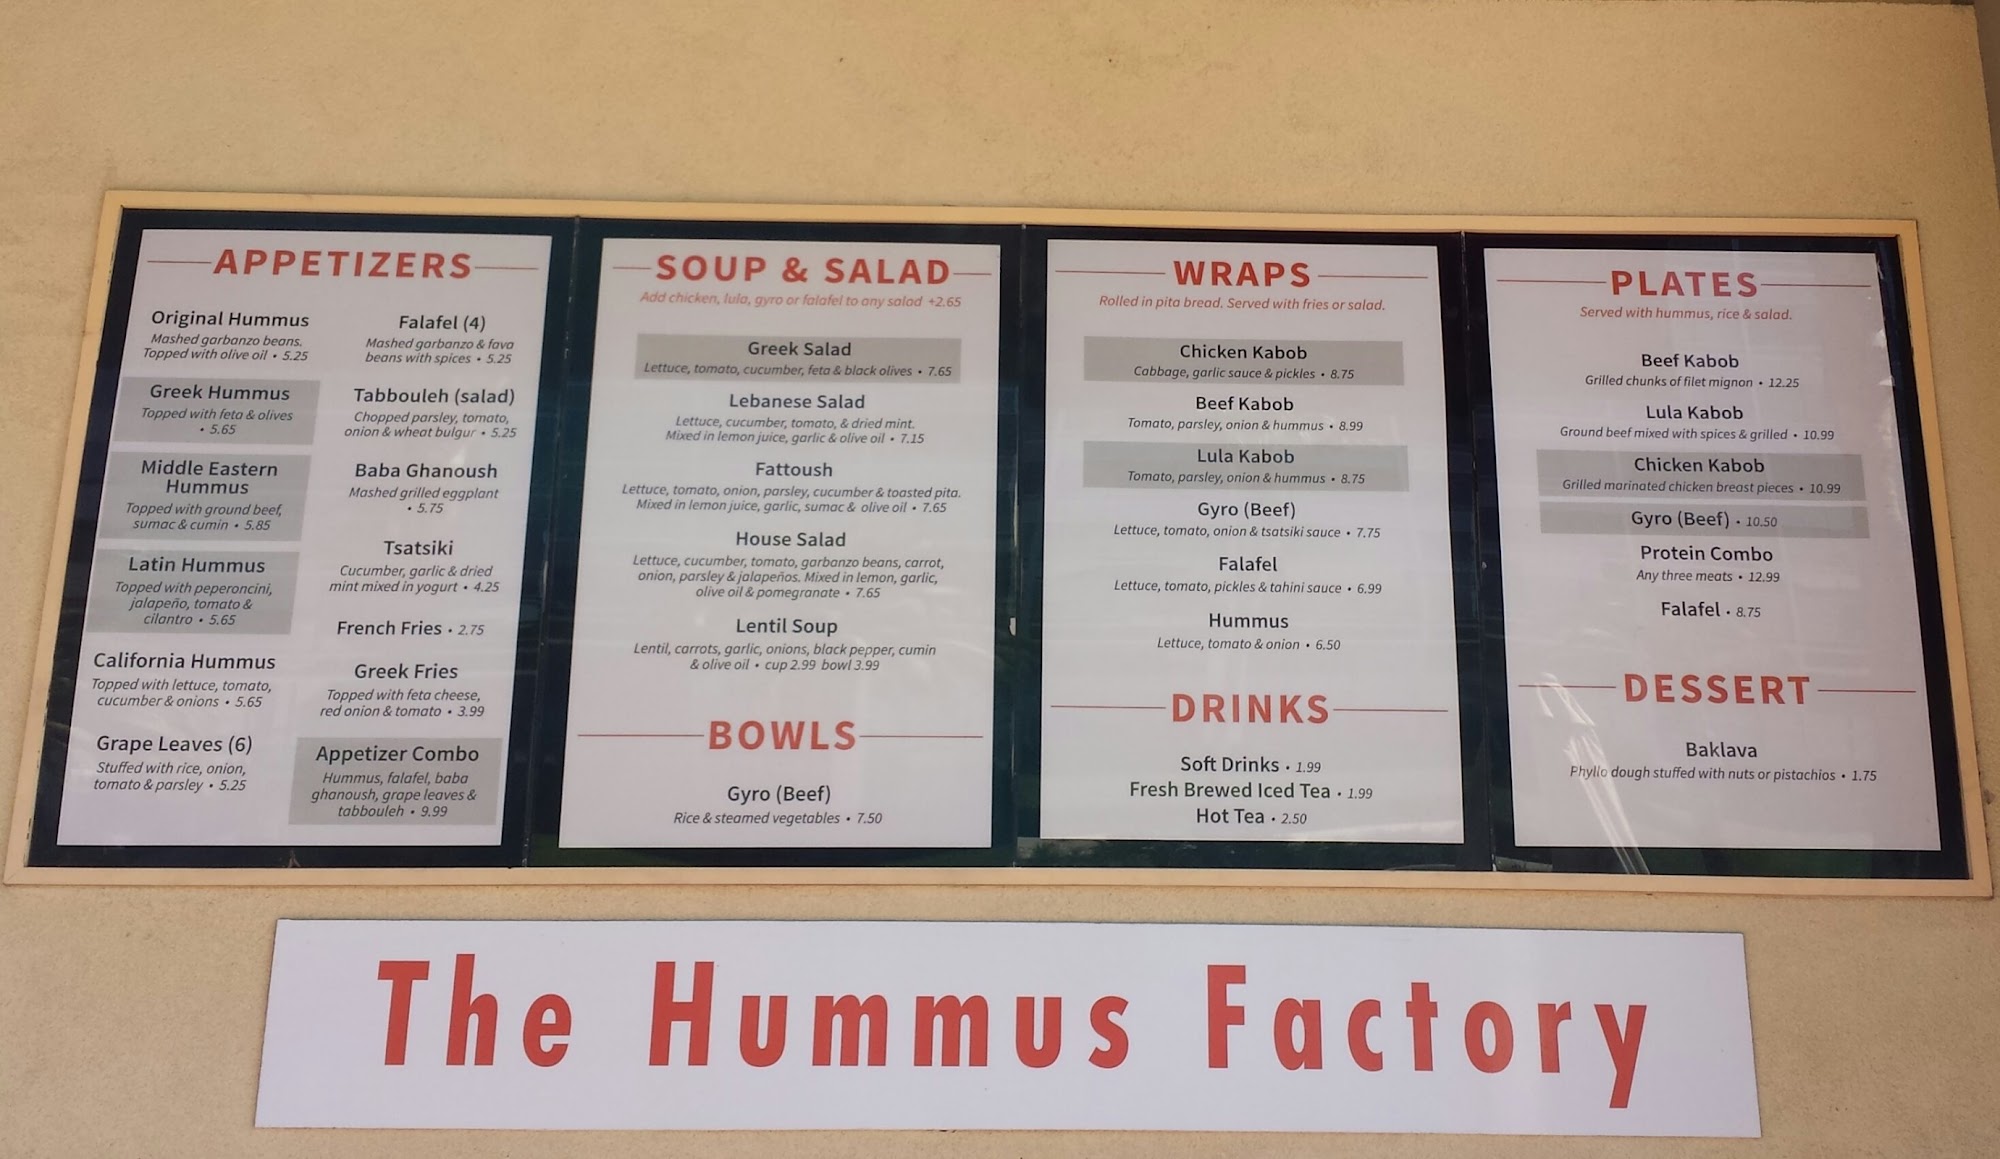 APPETIZERS
Original Hummus
Mashed garbanzo beans.
Topped with olive oil • 5.25
Greek Hummus
Topped with feta & olives
• 5.65
Middle Eastern
Hummus
Topped with ground beef,
sumac & cumin • 5.85
Latin Hummus
Topped with peperoncini,
jalapeño, tomato &
cilantro • 5.65
California Hummus
Topped with lettuce, tomato,
cucumber & onions • 5.65
Grape Leaves (6)
Stuffed with rice, onion,
tomato & parsley • 5.25
Falafel (4)
Mashed garbanzo & fava
beans with spices • 5.25
Tabbouleh (salad)
Chopped parsley, tomato,
onion & wheat bulgur • 5.25
Baba Ghanoush
Mashed grilled eggplant
• 5.75
Tsatsiki
Cucumber, garlic & dried
mint mixed in yogurt • 4.25
French Fries • 2.75
Greek Fries
Topped with feta cheese,
red onion & tomato • 3.99
Appetizer Combo
Hummus, falafel, baba
ghanoush, grape leaves &
tabbouleh • 9.99
SOUP & SALAD
Add chicken, lula, gyro or falafel to any salad +2.65
Greek Salad
Lettuce, tomato, cucumber, feta & black olives • 7.65
Lebanese Salad
Lettuce, cucumber, tomato, & dried mint.
Mixed in lemon juice, garlic & olive oil • 7.15
Fattoush
Lettuce, tomato, onion, parsley, cucumber & toasted pita.
Mixed in lemon juice, garlic, sumac & olive oil • 7.65
House Salad
Lettuce, cucumber, tomato, garbanzo beans, carrot,
onion, parsley & jalapeños. Mixed in lemon, garlic,
olive oil & pomegranate • 7.65
Lentil Soup
Lentil, carrots, garlic, onions, black pepper, cumin
& olive oil • cup 2.99 bowl 3.99
BOWLS
Gyro (Beef)
Rice & steamed vegetables • 7.50
WRAPS
Rolled in pita bread. Served with fries or salad.
Chicken Kabob
Cabbage, garlic sauce & pickles • 8.75
Beef Kabob
Tomato, parsley, onion & hummus • 8.99
Lula Kabob
Tomato, parsley, onion & hummus • 8.75
Gyro (Beef)
Lettuce, tomato, onion & tsatsiki sauce • 7.75
Falafel
Lettuce, tomato, pickles & tahini sauce • 6.99
Hummus
Lettuce, tomato & onion • 6.50
DRINKS
Soft Drinks • 1.99
Fresh Brewed Iced Tea • 1.99
Hot Tea • 2.50
PLATES
Served with hummus, rice & salad.
Beef Kabob
Grilled chunks of filet mignon • 12.25
Lula Kabob
Ground beef mixed with spices & grilled • 10.99
Chicken Kabob
Grilled marinated chicken breast pieces • 10.99
Gyro (Beef) • 10.50
Protein Combo
Any three meats • 12.99
Falafel • 8.75
DESSERT
Baklava
Phyllo dough stuffed with nuts or pistachios • 1.75
The Hummus Factory